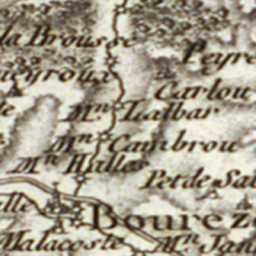 la Brousse
Peyre
ueyroux
Carlou
Mn. Lalbar
Mn. Cambrou
Mn. Malles
Pet de Sa
alle
Bourez
Malacoste
Mn. Jan